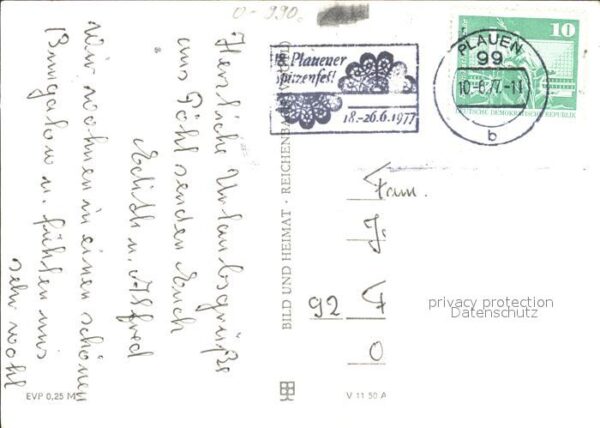 0-990
18. Plauener
Spitzenfest
18.-26.6.1977
PLAUEN
99
10.-6.77.-11
b
10
DEUTSCHE DEMOKRATISCHE REPUBLIK
Herzliche Urlaubsgrüße
aus Pöhl senden Euch
Edith u. Alfred
Wir wohnen in einen schönen
Bungalow u. fühlen uns
sehr wohl
BILD UND HEIMAT · REICHENBACH
Fam.
J
92 F
O
privacy protection
Datenschutz
EVP 0,25 M
V 11 50 A